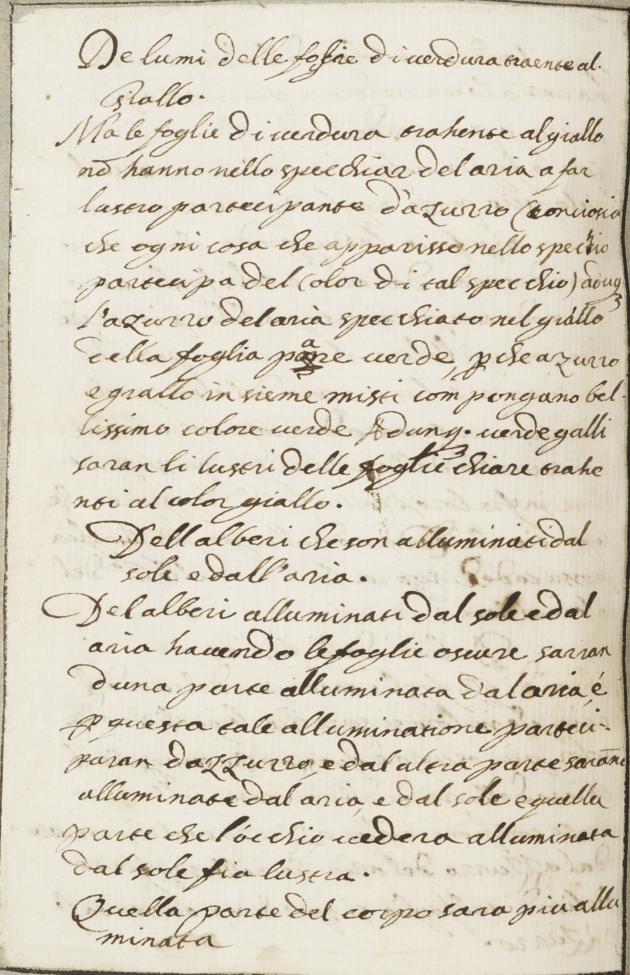 De lumi delle foglie di verdura traente al
Giallo.
Ma le foglie di verdura trahente al giallo
nō hanno nello specchiar del aria a far
lustro partecipante d'azurro (conciosia
che ogni cosa che apparisse nello spechio
partecipa del Color di tal specchio) adūq3
l'azurro del aria specchiato nel giallo
della foglia pare verde, ꝑche azurro
e giallo insieme misti compongano bel-
lissimo colore verde Adunq. verde galli
saran li lustri delle foglie chiare trahe
nti al color giallo.
Dell alberi che son alluminati dal
sole e dall'aria.
Del alberi alluminati dal sole e dal
aria havendo le foglie oscure sarran
d una parte alluminata dal aria, é
ꝑ questa tale alluminatione parteci-
paran d azzurro, e dal altra parte saranō
alluminate dal aria, e dal sole e quella
parte che l'occhio vedera alluminata
dal sole fia lustra.
Quella parte del corpo sara piu allu
minata